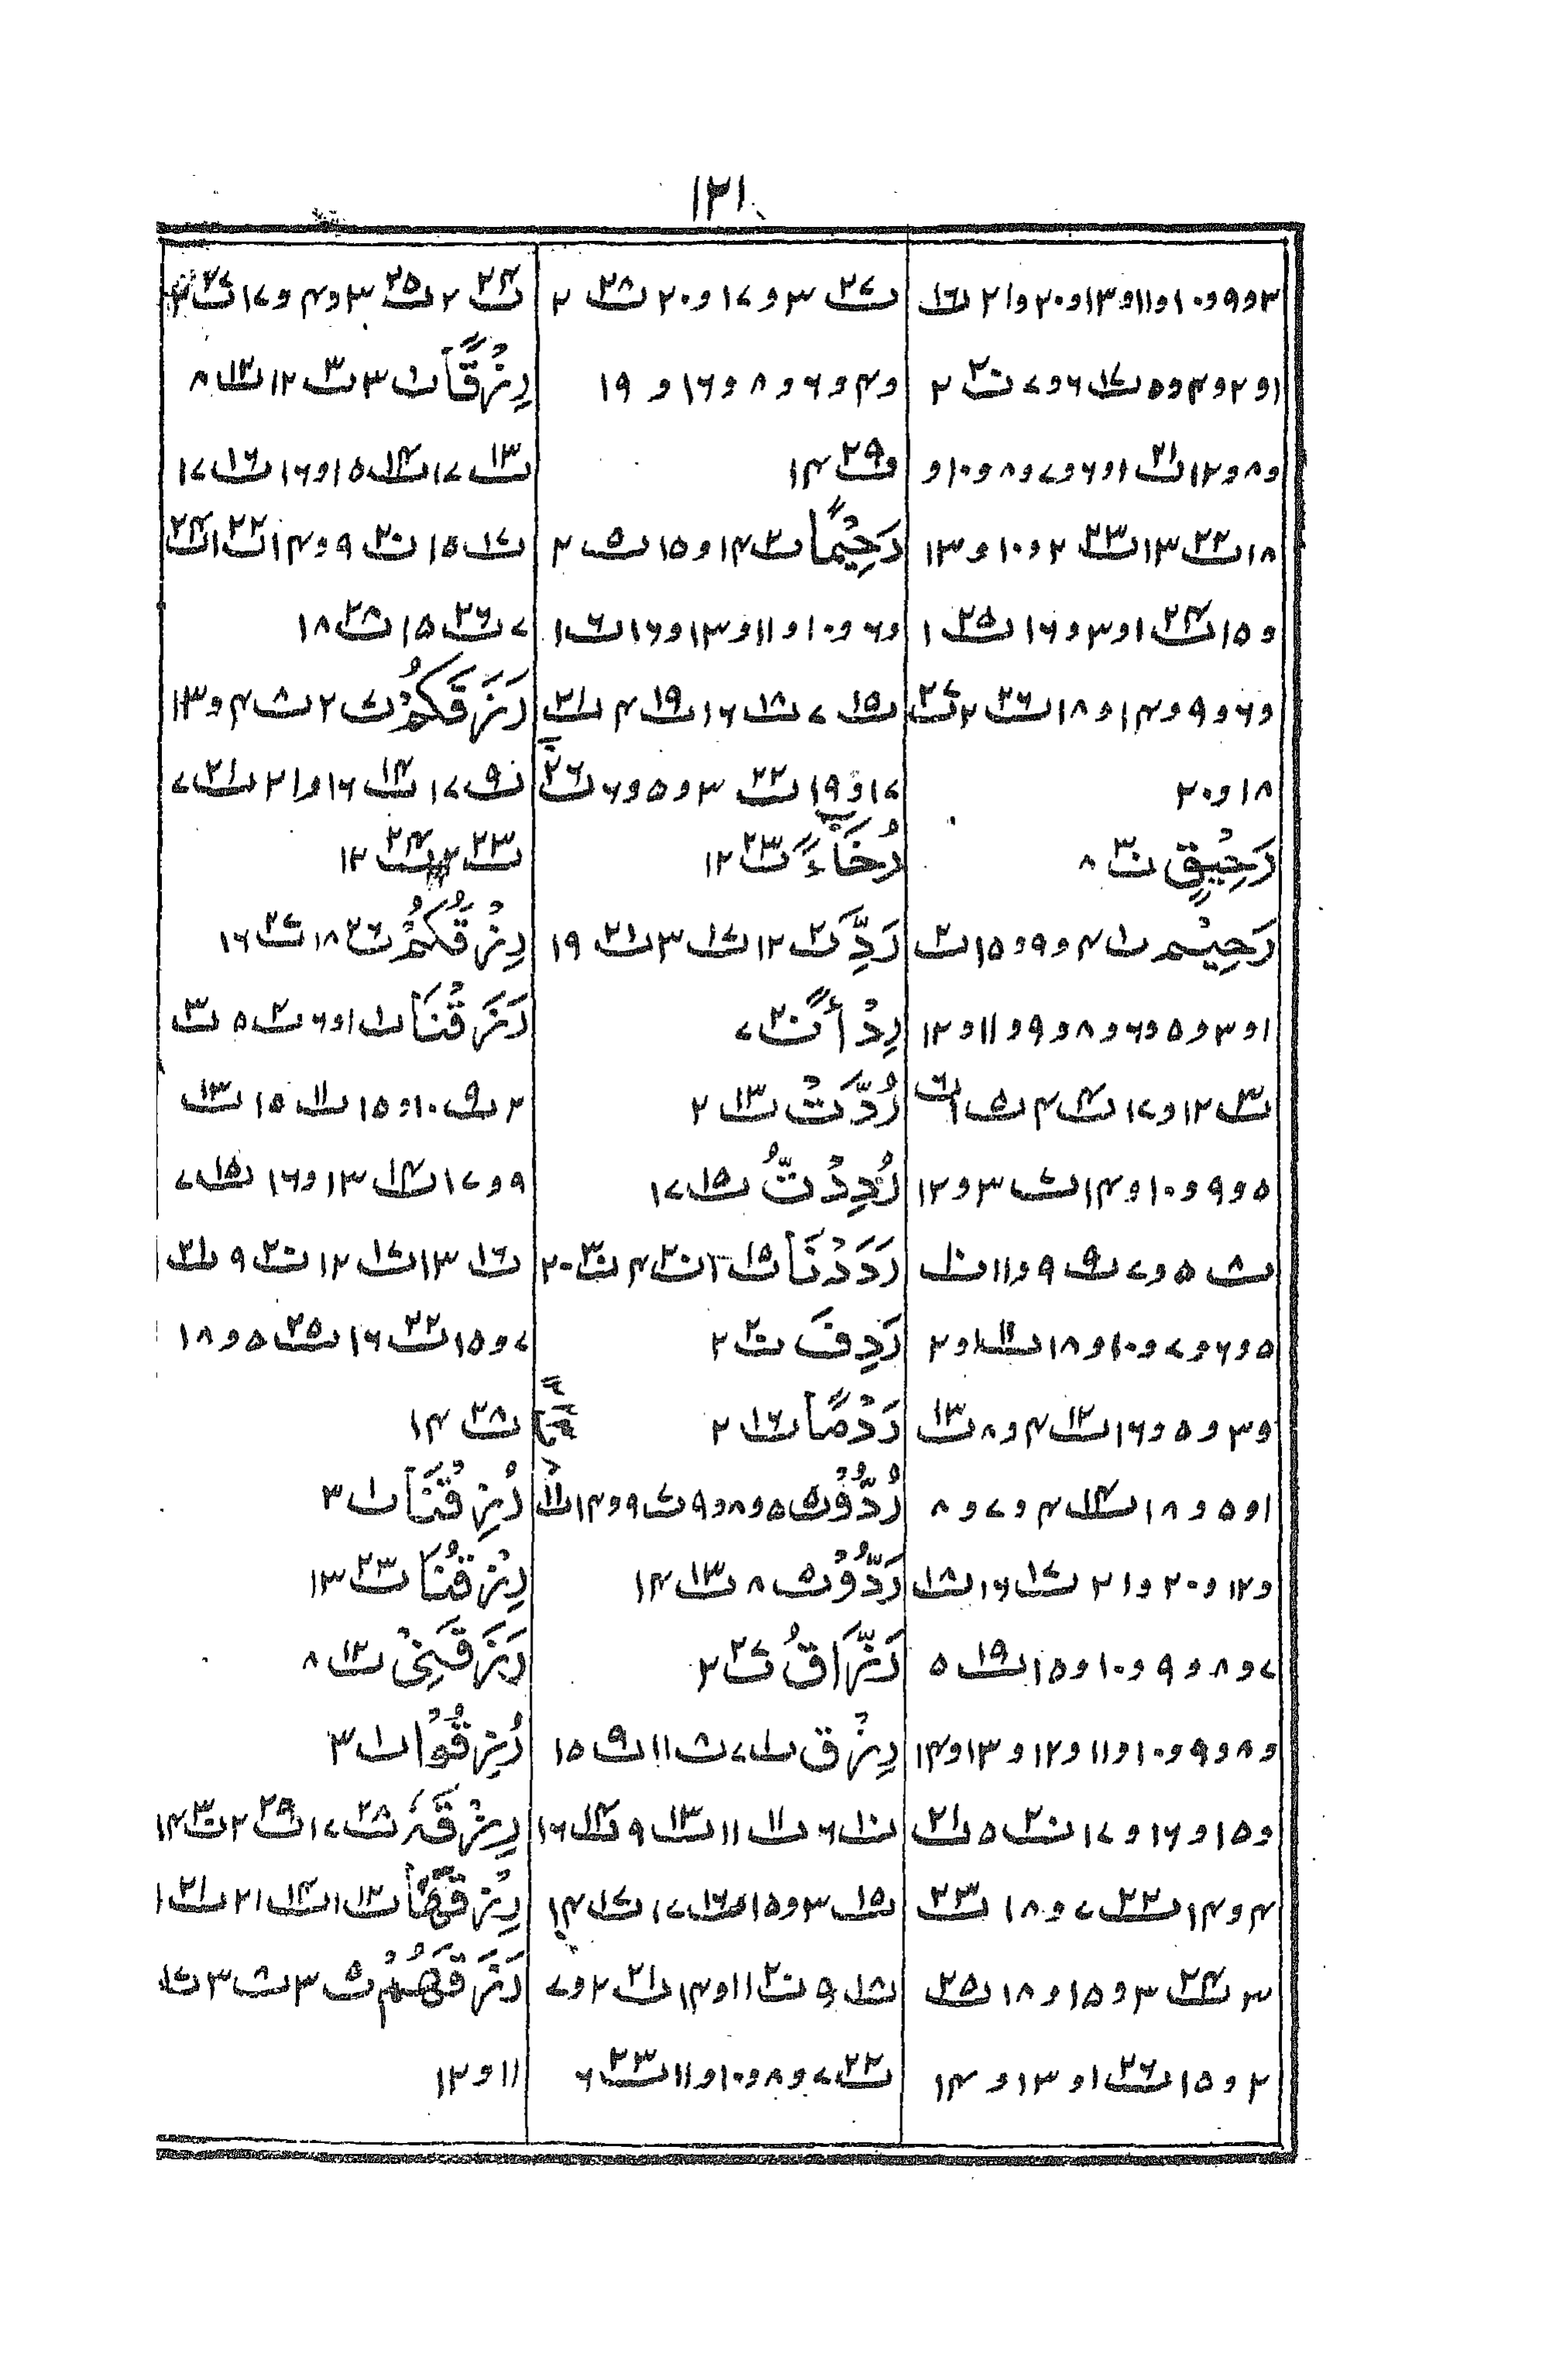 ۱۲۱
۳و۹و۱۰و۱۱و۱۳و۲۰و۲۱ پ۱۶
۱و۲و۴و۵ پ۱۷ ۶و۷ پ۲۰ ۲
و۸و۱۲ پ۲۱ ۱و۶و۷و۸و۱۰و
۱۸ پ۲۲ ۱۳ پ۲۳ ۲و۱۰و۱۳
و۱۵ پ۲۴ ۱و۳و۱۶ پ۲۵ ۱
و۶و۹و۱۴و۱۸ پ۲۶ ۲ پ۲۷
۱۸و۲۰
رَحِيْقٍ پ۳۰ ۸
رَحِيْم پ۱ ۴و۹و۱۵ پ۲
۱و۳و۵و۶و۸و۹و۱۱و۱۲
پ۳ ۱۲و۱۷ پ۴ ۴ پ۵ ۱ پ۶
۵و۹و۱۰و۱۴ پ۷ ۳و۱۲
پ۸ ۵و۷ پ۹ ۹و۱۱ پ۱۰
۵و۶و۷و۱۰و۱۸ پ۱۱ ۱و۲
و۳و۵و۱۶ پ۱۲ ۴و۸ پ۱۳
۱و۵و۱۸ پ۱۴ ۴و۷و۸
و۱۲و۲۰و۲۱ پ۱۷ ۱۶ پ۱۸
۷و۸و۹و۱۰و۱۵ پ۱۹ ۵
و۸و۹و۱۰و۱۱و۱۲و۱۳و۱۴
و۱۵و۱۶و۱۷ پ۲۰ ۵ پ۲۱
۴و۱۴ پ۲۲ ۷و۱۸ پ۲۳
۳ پ۲۴ ۳و۱۵و۱۸ پ۲۵
۲و۱۵ پ۲۶ ۱و۱۳و۱۴
پ۲۷ ۳و۱۷و۲۰ پ۲۸ ۲
و۴و۶و۸و۱۶و۱۹
و پ۲۹ ۱۴
رَحِيْمًا پ۴ ۱۴و۱۵ پ۵ ۲
و۶و۱۰و۱۱و۱۳و۱۶ پ۶ ۱
پ۱۵ ۷ پ۱۸ ۱۶ پ۱۹ ۴ پ۲۱
۱۷و۱۹ پ۲۲ ۳و۵و۶ پ۲۶
رُخَآءً پ۲۳ ۱۲
رَدِّ پ۲ ۱۲ پ۱۷ ۳ پ۲۱ ۱۹
رِدْأً پ۲۰ ۷
رُدَّتْ پ۱۳ ۲
رُدِدْتُّ پ۱۵ ۱۷
رَدَدْنَا پ۱۵ ۱ پ۲۰ ۴ پ۳۰ ۲۰
رَدِفَ پ۲۰ ۲
رَدْمًا پ۱۶ ۲
رُدُّوْا پ۵ ۵و۸و۹ پ۷ ۹و۱۴ پ۱۱
رَدُّوْا پ۵ ۸ پ۱۳ ۱۴
رَزَّاقُ پ۲۷ ۲
رِزْق پ۱ ۷ پ۸ ۱۱ پ۹ ۱۵
پ۱۰ ۶ پ۱۱ ۱۱ پ۱۳ ۹ پ۱۴ ۱۶
پ۱۵ ۳و۱۵ پ۱۶ ۱۷ پ۱۷ ۱۴
پ۱۸ ۹ پ۲۰ ۱۱و۱۴ پ۲۱ ۲و۷
پ۲۲ ۷و۸و۱۰و۱۱ پ۲۳ ۶
پ۲۴ ۲ پ۲۵ ۳و۴و۱۷ پ۲۷
رِزْقًا پ۱ ۳ پ۳ ۱۲ پ۱۲ ۸
پ۱۳ ۱۷ پ۱۴ ۱۵و۱۶ پ۱۶ ۱۷
پ۱۷ ۱۵ پ۲۰ ۹و۱۴ پ۲۲ ۱ پ۲۴
۷ پ۲۶ ۱۵ پ۲۸ ۱۸
رَزَقَكُمُ پ۷ ۲ پ۸ ۴و۱۳
پ۹ ۱۷ پ۱۴ ۱۶و۲۱ پ۲۱ ۷
پ۲۳ ۲ پ۲۴ ۱۲
رِزْقُكُمْ پ۲۶ ۱۸ پ۲۷ ۱۶
رَزَقْنَا پ۱ ۱و۶ پ۲ ۵ پ۳
۲ پ۹ ۱۰و۱۵ پ۱۱ ۱۵ پ۱۳
۹و۱۷ پ۱۴ ۱۳و۱۶ پ۱۵ ۷
پ۱۶ ۱۳ پ۱۷ ۱۲ پ۲۰ ۹ پ۲۱
۷و۱۵ پ۲۲ ۱۶ پ۲۵ ۵و۱۸
پ۲۸ ۱۴
رُزِقْنَا پ۱ ۳
رِزْقُنَا پ۲۳ ۱۳
رَزَقَنِيْ پ۱۲ ۸
رُزِقُوْا پ۱ ۳
رِزْقَهٗ پ۲۸ ۱۷ پ۲۹ ۲ پ۳۰ ۱۴
رِزْقُهَا پ۱۲ ۱ پ۱۴ ۲۱ پ۲۱
رَزَقَهُمُ پ۵ ۳ پ۸ ۳ پ۱۷
۱۱و۱۲